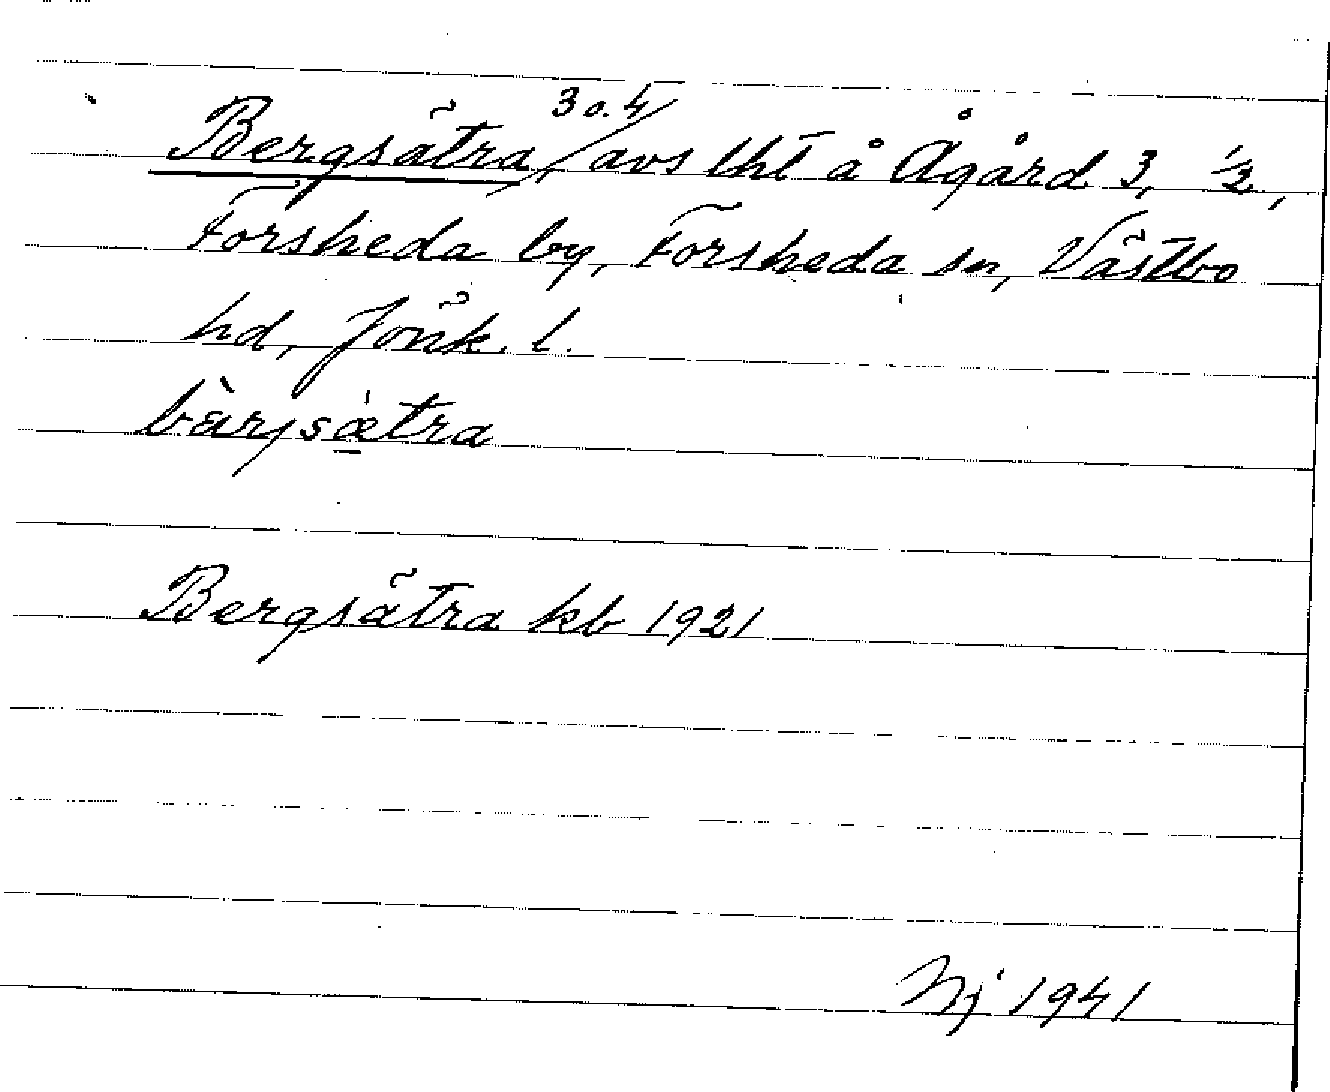 Bergsätra, 3 o. 4 avs lht å Ågård 3, ½,
Forsheda by, Forsheda sn, Västbo
hd, Jönk. l.
bàrjsætra
Bergsätra kb 1921
Nj 1941